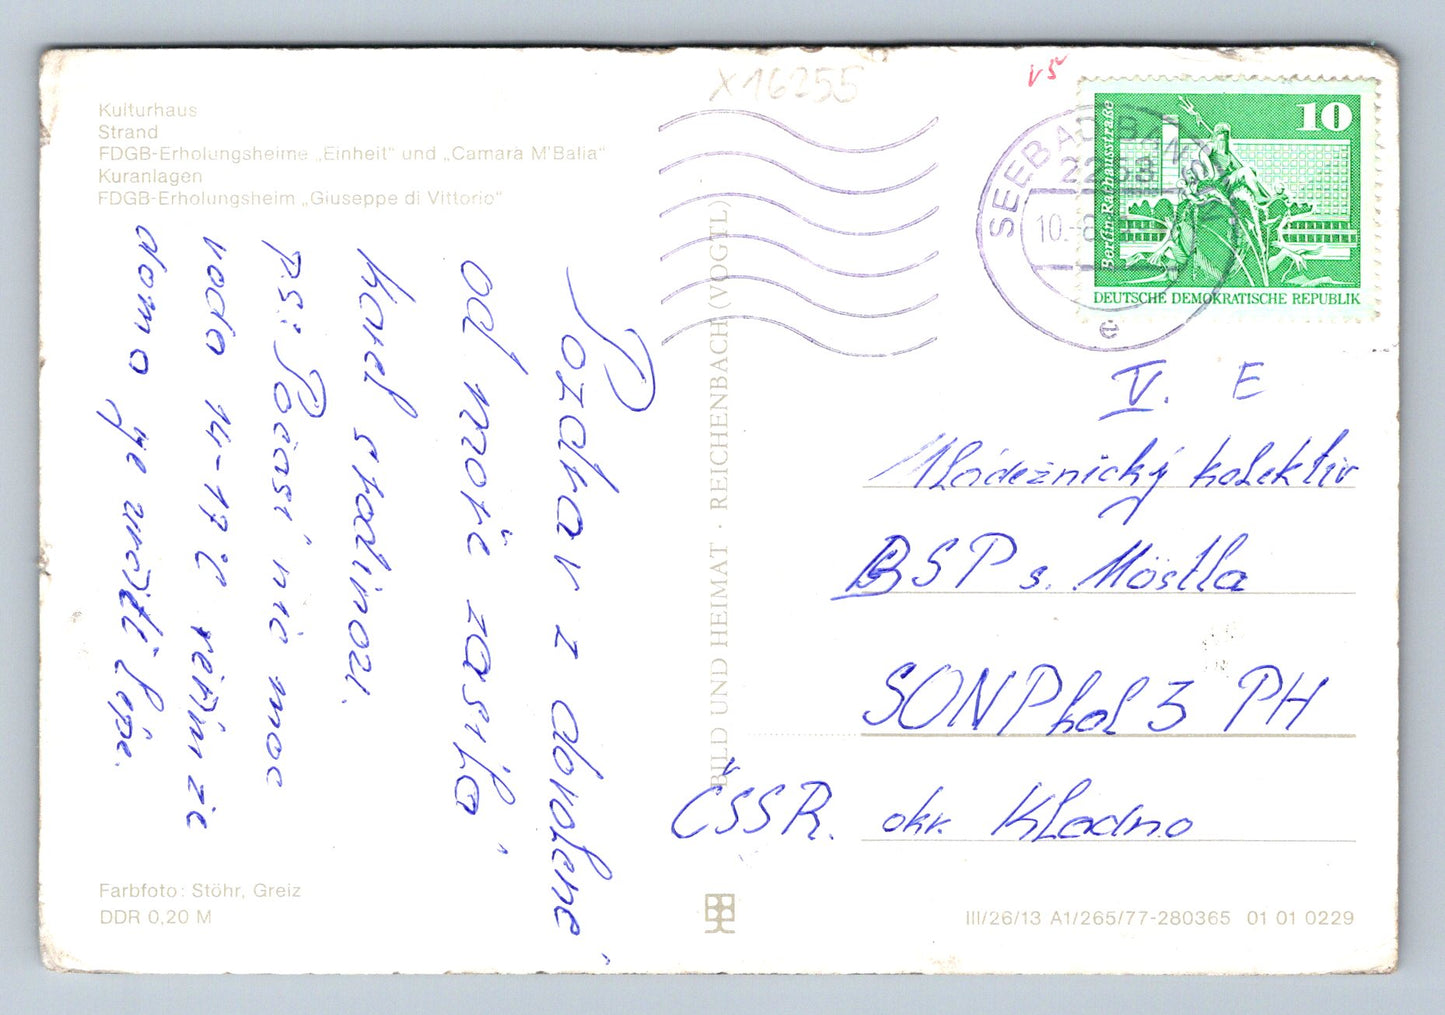 X16255
v5
Kulturhaus
Strand
FDGB-Erholungsheime „Einheit" und „Camara M'Balia"
Kuranlagen
FDGB-Erholungsheim „Giuseppe di Vittorio"
Pozdrav z dovolené
od moře zasílá
Karel
P.S.: Počasí nic moc
voda 14-17°C
doma je
Farbfoto: Stöhr, Greiz
DDR 0,20 M
BILD UND HEIMAT · REICHENBACH (VOGTL)
10
Berlin-Rathausstraße
DEUTSCHE DEMOKRATISCHE REPUBLIK
SEEBAD BANSIN
2253
10.-8.
e
V. E
Mládežnický kolektiv
BSP s. Möstla
SONP hal 3 PH
ČSSR. okr. Kladno
III/26/13 A1/265/77-280365 01 01 0229